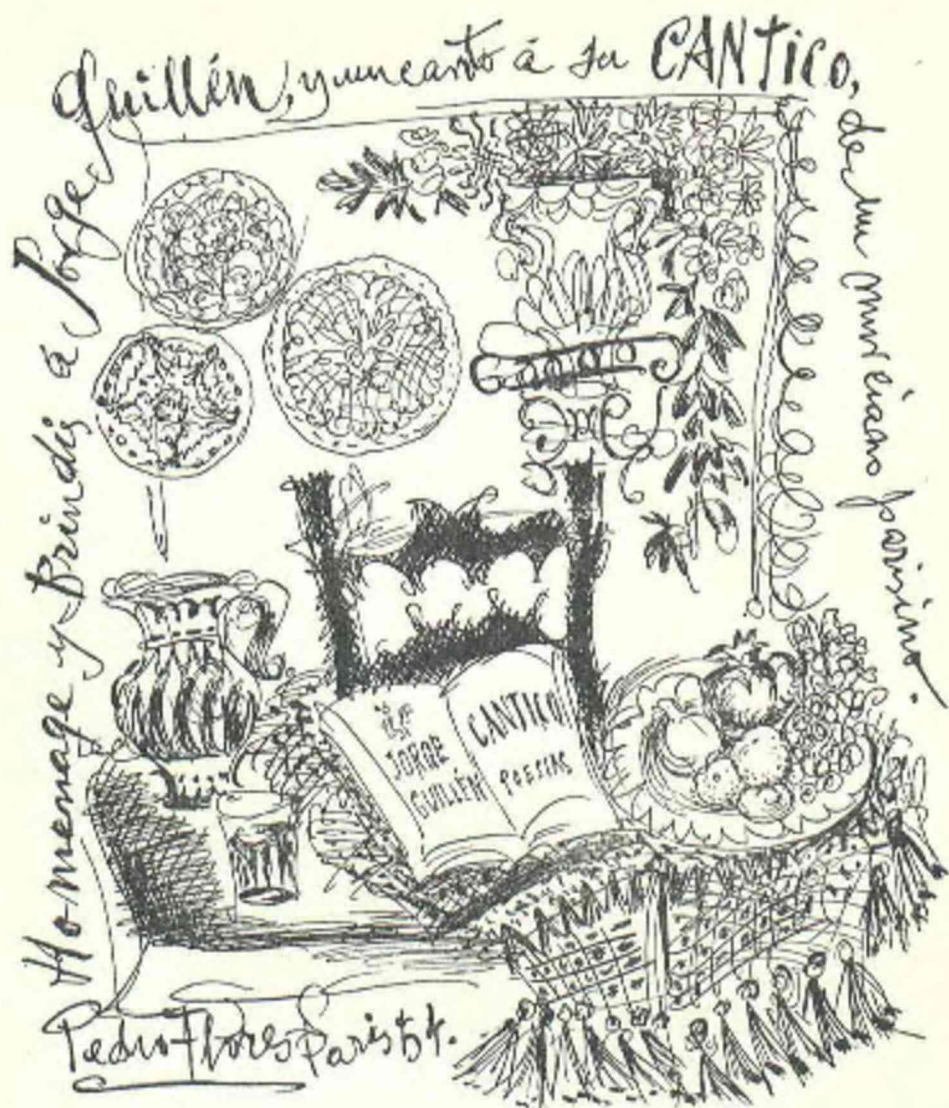 Homenage y Brindis á Jorge
Guillén, y un canto á su CANTICO,
de un murciano parisino.
JORGE
GUILLÉN
CANTICO
POESIAS
Pedro Flores Paris 54.